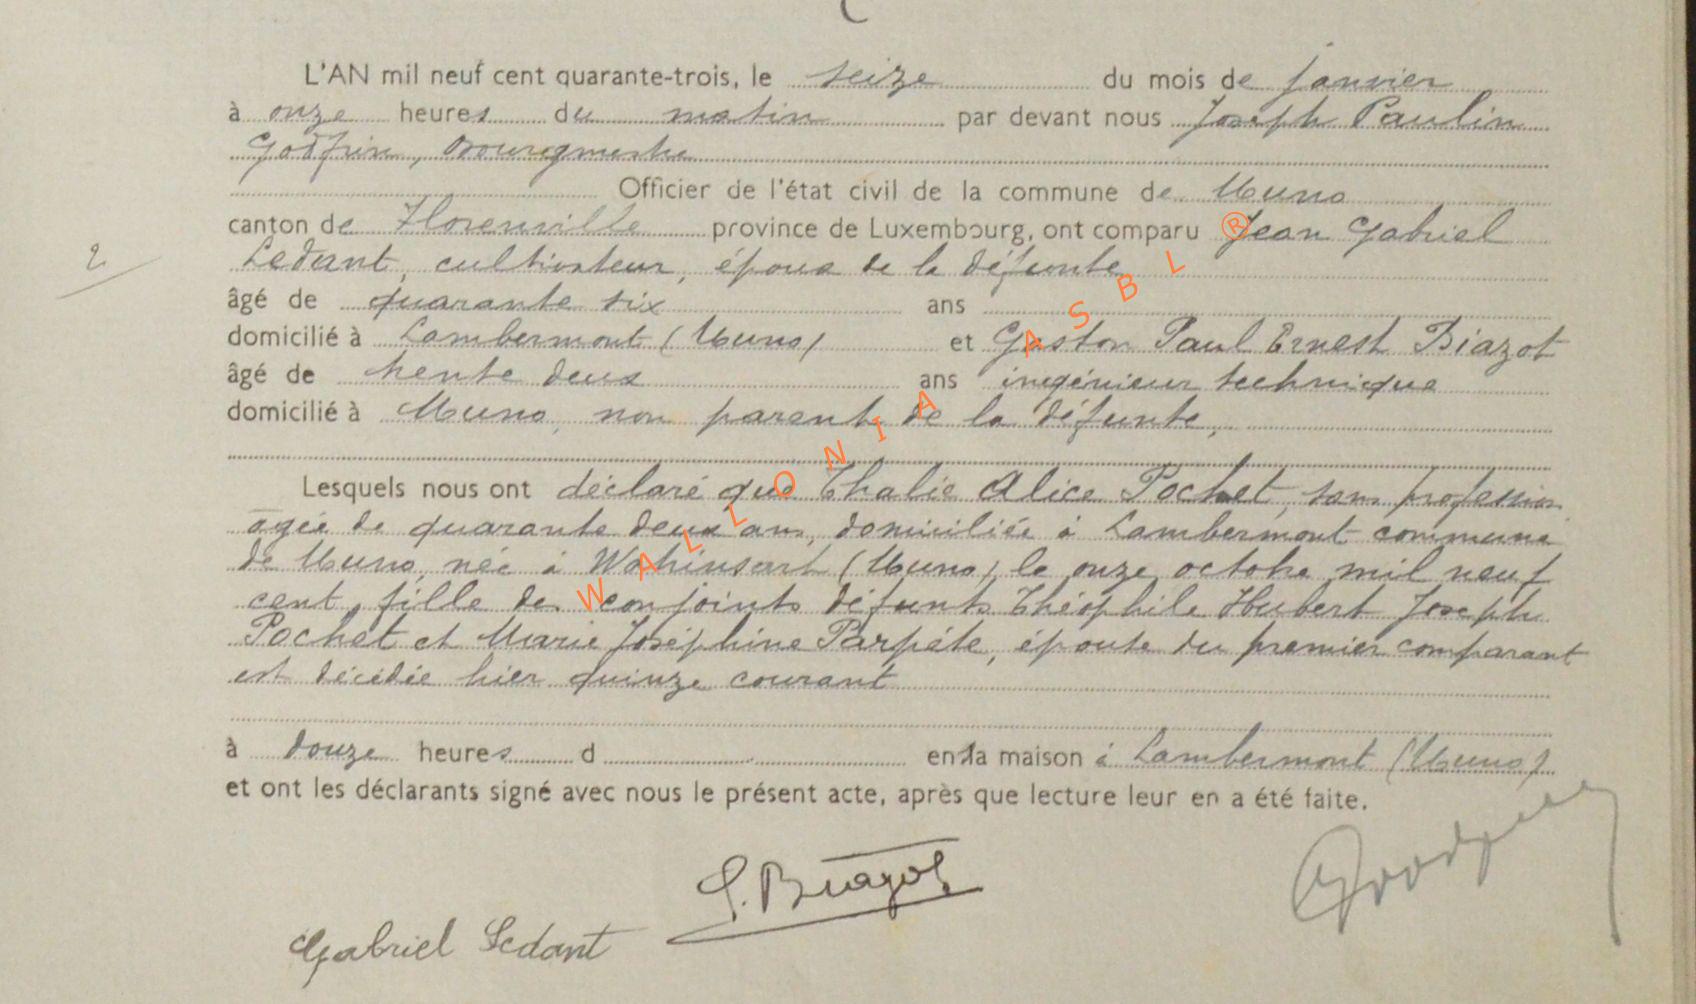 L'AN mil neuf cent quarante-trois, le seize du mois de janvier
à onze heures du matin par devant nous Joseph Paulin
Godfrin, Bourgmestre
Officier de l'état civil de la commune de Muno
canton de Florenville province de Luxembourg, ont comparu Jean Gabriel
2
Ledant, cultivateur, époux de la défunte
âgé de quarante six ans
domicilié à Lambermont (Muno) et Gaston Paul Ernest Biazot
âgé de trente deux ans ingénieur technique
domicilié à Muno, non parent de la défunte,
Lesquels nous ont déclaré que Thalie Alice Pochet, sans profession
âgée de quarante deux ans, domiciliée à Lambermont commune
de Muno, née à Watrinsart (Muno) le onze octobre mil neuf
cent, fille des conjoints défunts Théophile Hubert Joseph
Pochet et Marie Joséphine Parpète, épouse du premier comparant
est décédée hier quinze courant
à douze heures d en sa maison à Lambermont (Muno)
et ont les déclarants signé avec nous le présent acte, après que lecture leur en a été faite.
G. Biazot
Gabriel Ledant
WALLONIA ASBL ®